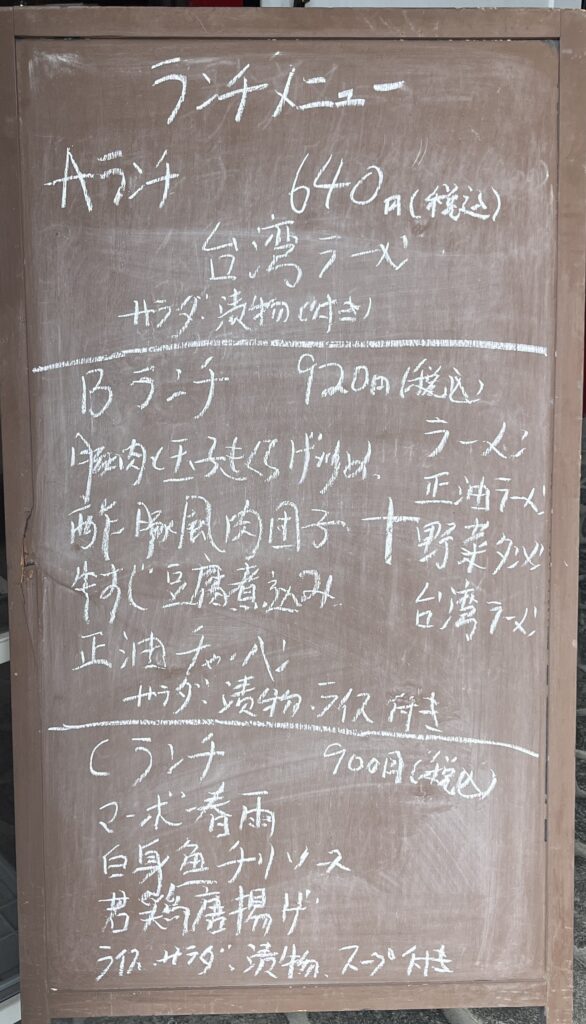 ランチメニュー
Aランチ 640円(税込)
台湾ラーメン
サラダ、漬物(付き)
Bランチ 920円(税込)
豚肉と玉子もくらげ炒め
酢豚風肉団子
牛すじ豆腐煮込み
正油チャーハン
+
ラーメン
正油ラーメン
野菜タンメン
台湾ラーメン
サラダ、漬物、ライス付き
Cランチ 900円(税込)
マーボー春雨
白身魚チリソース
若鶏唐揚げ
ライス、サラダ、漬物、スープ付き